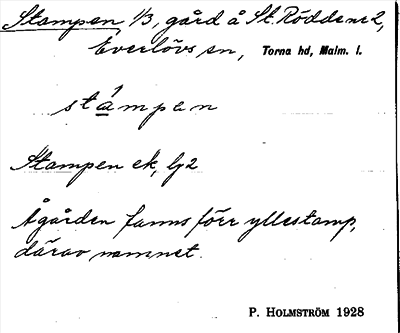 Stampen, 1/3, gård å St. Röddene 2,
Everlövs sn, Torna hd, Malm. l.
stámpen
Stampen ek, lj 2
Å gården fanns förr yllestamp,
därav namnet.
P. HOLMSTRÖM 1928